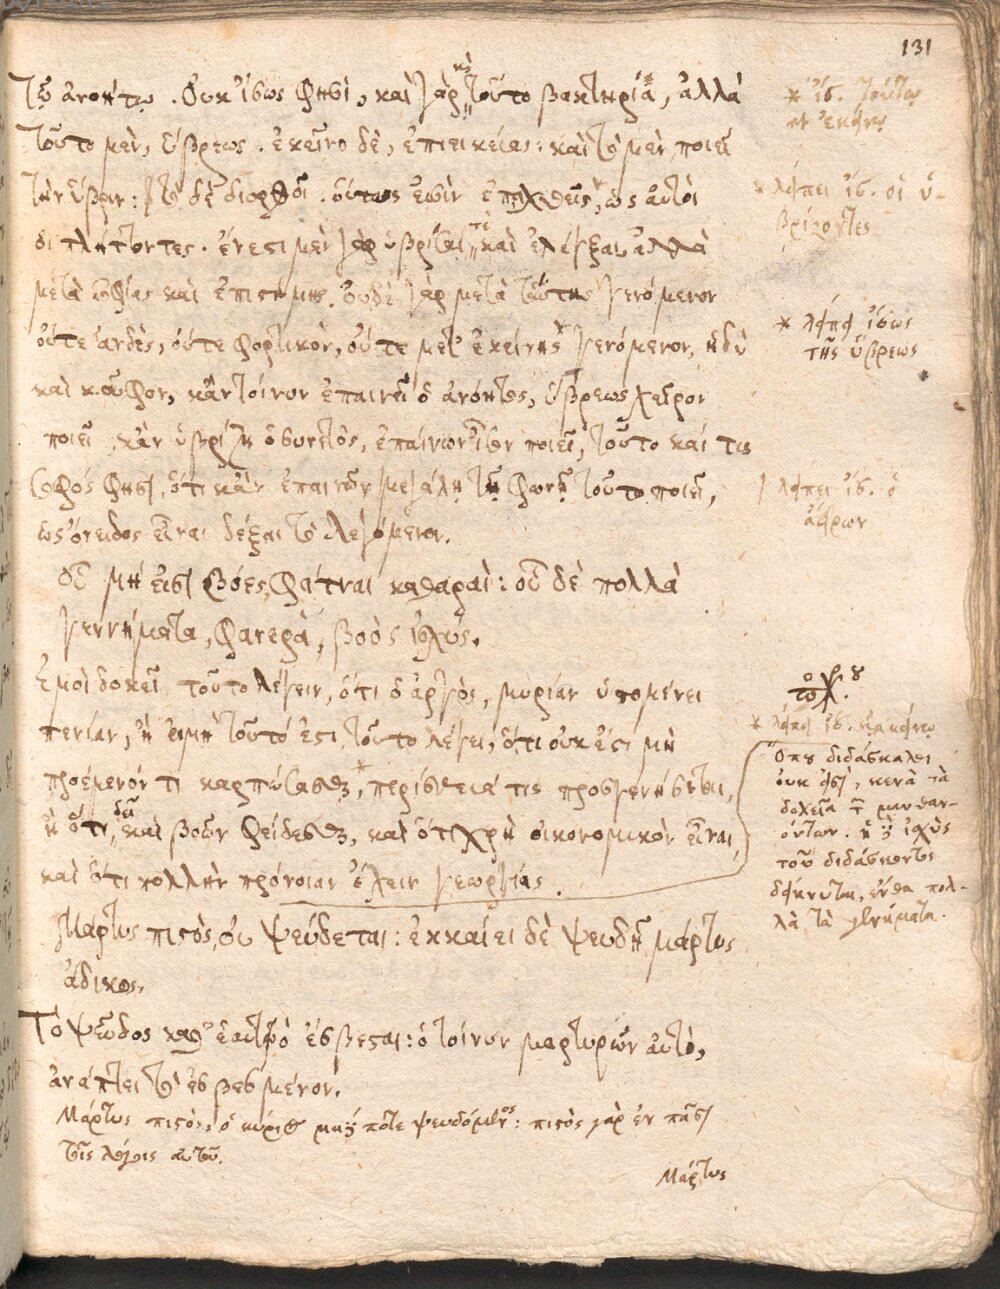 131
τῷ ἀνοήτῳ. Οὐκ ἴσως φησὶ, καὶ γὰρ καὶ τοῦτο βακτηρία, ἀλλὰ
τοῦτο μὲν, ὕβρεως. ἐκεῖνο δὲ, ἐπιεικείας: καὶ τὸ μὲν ποιεῖ
τὴν ὕβριν: τὸ δὲ διορθοῖ. οὕτως ἐστὶν ἐπαχθεῖς, ὡς αὐτοὶ
διπλήττοντες. ἔνεστι μὲν γὰρ ὑβρίσαι τε καὶ ἐλέγξαι ἀλλὰ
μετὰ σοφίας καὶ ἐπιστήμης. Οὐδὲ γὰρ μετὰ ταύτης γενόμενον
οὔτε ἀηδὲς, οὔτε φορτικὸν, οὔτε μετ' ἐκείνης γενόμενον, ἡδὺ
καὶ κοῦφον, κἄν τοίνυν ἐπαινεῖ ὁ ἀνόητος, ὕβρεως χεῖρον
ποιεῖ, κἂν ὑβρίζῃ ὁ συνετὸς, ἐπαίνων ἴσον ποιεῖ, τοῦτο καί τις
σοφός φησι, ὅτι κἂν ἐπαινῶν μεγάλῃ τῇ φωνῇ τοῦτο ποιεῖ,
ὡς ὄνειδος εἶναι δέξαι τὸ λεγόμενον.
οὗ μή εἰσι βόες, φάτναι καθαραὶ: οὗ δὲ πολλὰ
γεννήματα, φανερὰ, βοὸς ἰσχύς.
Ἐμοὶ δοκεῖ τοῦτο λέγειν, ὅτι ὁ ἀργὸς, μυρίαν ὑπομένει
πενίαν, ἢ εἰ μὴ τοῦτό ἐστι, τοῦτο λέγει, ὅτι οὐκ ἔστι μὴ
προέμενόν τι καρπώσασθαι, περίσσειά τις προσγενήσεται,
ἢ ὅτι δεῖ καὶ βοῶν φείδεσθαι, καὶ ὅτι χρὴ οἰκονομικὸν εἶναι,
καὶ ὅτι πολλὴν πρόνοιαν ἔχειν γεωργίας.
Μάρτυς πιστὸς, οὐ ψεύδεται: ἐκκαίει δὲ ψευδῆ μάρτυς
ἄδικος.
Τὸ ψεῦδος καθ' ἑαυτὸ ἔσβεσται: ὁ τοίνυν μαρτυρῶν αὐτὸ,
ἀνάπτει τὸ ἐσβεσμένον.
Μάρτυς πιστὸς, ὁ κύριος μηδέποτε ψευδόμενος: πιστὸς γὰρ ἐν πᾶσι
τοῖς λόγοις αὐτοῦ.
Μάρτυς
* ἴσ. τούτῳ
* λείπει ἴσ. οἱ ὑ-
βρίζοντες
* λείπει ἴσως
τῆς ὕβρεως
λείπει ἴσ. ὁ
ἄφρων
Ὅπου διδάσκαλοι
οὐκ εἰσὶ, κενὰ τὰ
δοχεῖα τῶν μανθαν-
όντων. ἡ δὲ ἰσχὺς
τοῦ διδάσκοντος
δείκνυται, ἔνθα πολ-
λὰ τὰ γεννήματα.